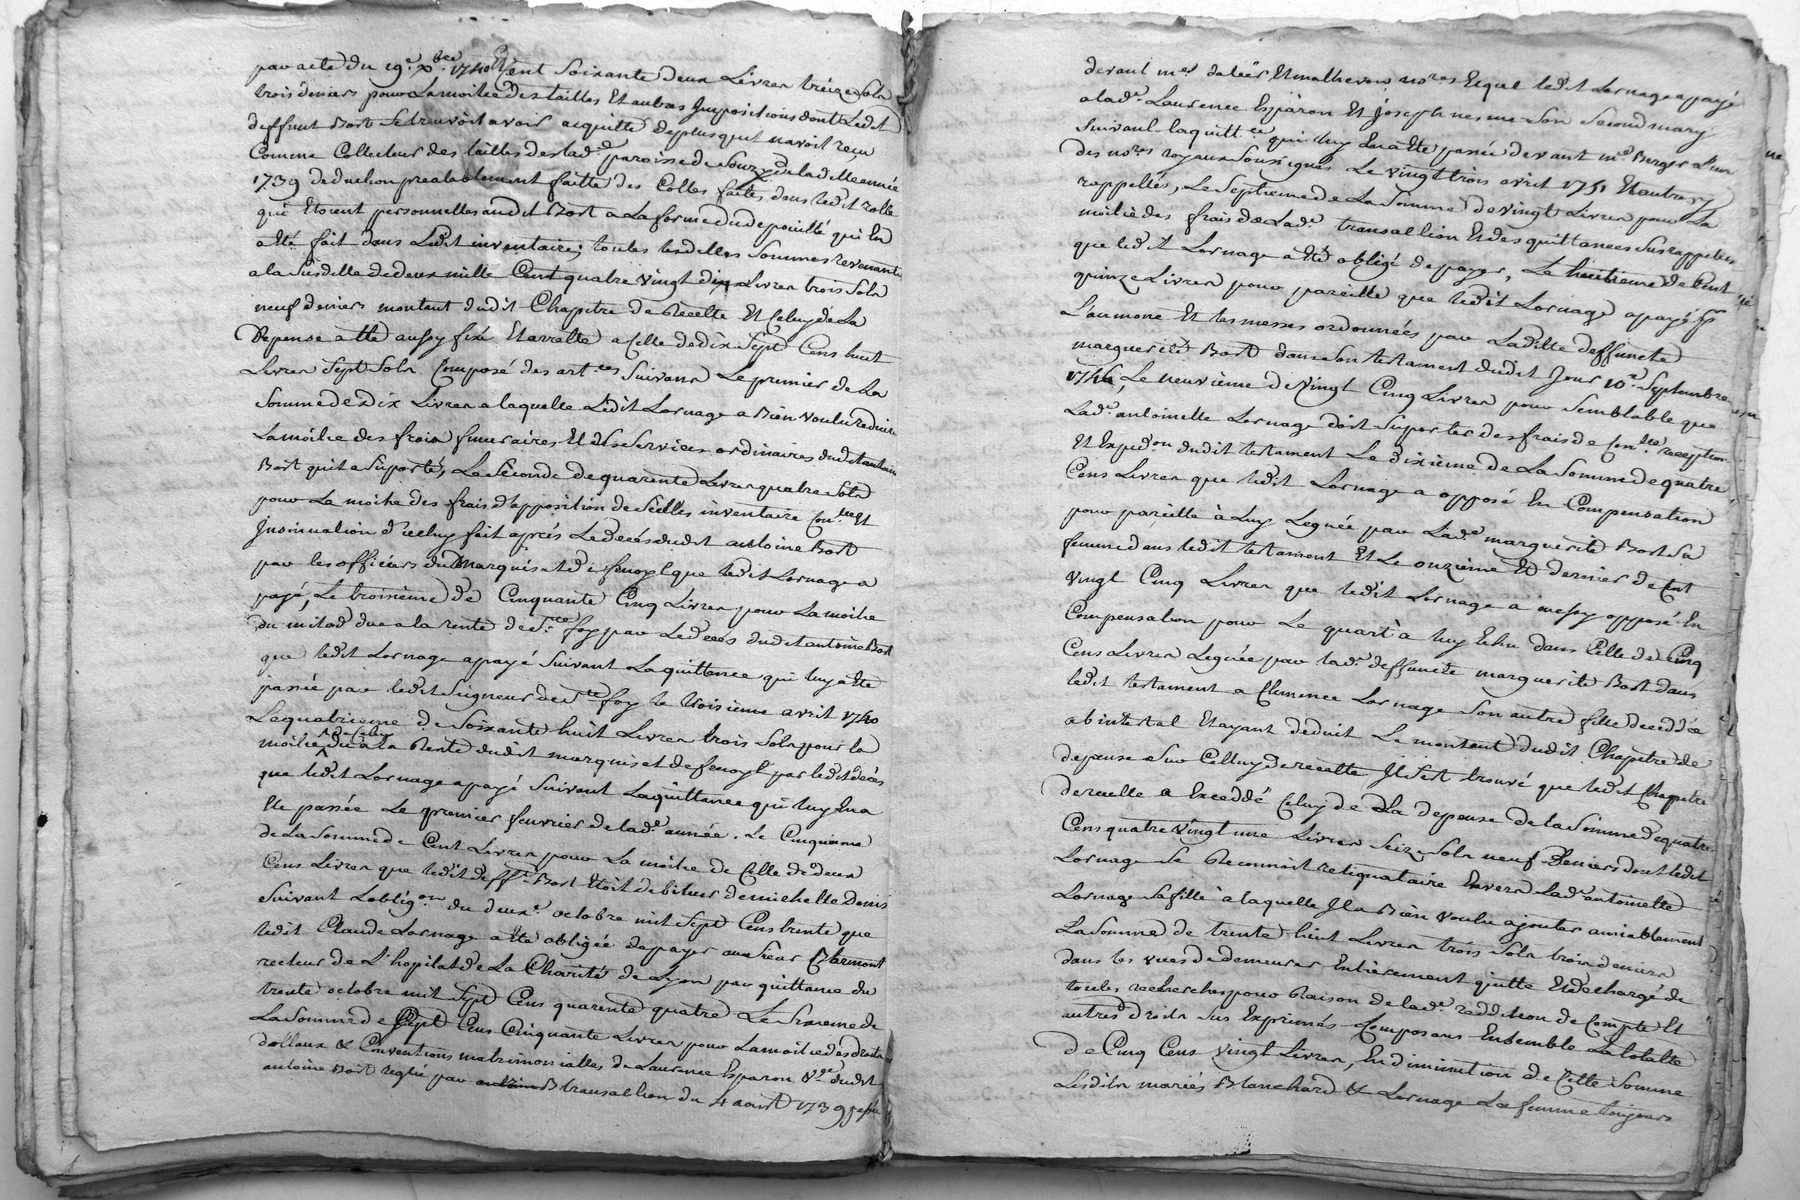 par acte du 19e xbre 1740 Cent Soixante deux Livres treize Sols
trois deniers pour La moitié des tailles Et autres Impositions dont Ledit
deffunt Bost Se trouvoit avoir acquitté de plus quil navoit reçu
Comme Collecteur des tailles de lad.e paroisse de Souzy de ladtte année
1739 deduction prealablement faitte des Cottes faites dans ledit rolle
qui Etoient personnelles audit Bost a La forme du depouillé qui En
a Eté fait dans Ledit inventaire; toutes lesdittes Sommes revenantes
a la Susditte de deux mille Cent quatre vingt dix Livres trois Sols
neuf deniers montant dudit Chapitre de Recette Et Celuy de La
Depense a Eté aussy fixé Et arretté a Celle de dix Sept Cens huit
Livres Sept Sols Composé des art.les Suivans Le premier de La
Somme de Dix Livres a laquelle Ledit Lornage a Bien voulu reduire
La moitié des frais funeraires Et des Services ordinaires dudit antoine
Bost quil a Suporté, Le Seconde de quarente Livres quatre Sols
pour La moitié des frais d'apposition de Scellés inventaire Con.lle Et
Insinuation d'iceluy fait après Le Deces dudit antoine Bost
par les officiers du Marquisat de fenoyl que ledit Lornage a
payé, Le troisième de Cinquante Cinq Livres pour La moitié
du milod due a la rente de Ste foy par Le Deces dudit antoine Bost
que ledit Lornage a payé Suivant La quittance qui luy a Eté
passée par ledit Seigneur de Ste foy le troisieme avril 1740
Le quatrieme de Soixante huit Livres trois Sols pour la
moitié de Celuy du a La Rente dudit marquisat de fenoyl par ledit deces
que ledit Lornage a payé Suivant La quittance qui luy En a
Eté passée Le premier fevrier de lad.e année. Le Cinquieme
de La Somme de Cent Livres pour La moitié de Celle de deux
Cens Livres que ledit deff.t Bost Etoit debiteur de michelle Denis
Suivant L'oblig.on du deux.e octobre mil Sept Cens trente que
ledit Claude Lornage a Eté obligée de payer au Sieur Claremont
recteur de L'hopital de La Charité de Lyon par quittance du
trente octobre mil Sept Cens quarente quatre Le Sixieme de
La Somme de Sept Cens Cinquante Livres pour La moitié des droits
dottaux & Conventions matrimonialles de Laurence Esparon V.ve dudit
antoine Bost reglé par transaction du 4 aoust 1739 passée
devant m.es Et malhevon no.res Et que ledit Lornage a payé
a lad.e Laurence Esparon Et Joseph nesme Son Second mary
Suivant la quitt.ce qui luy En a Eté passée devant m.e Berger L'un
des no.res royaux Soussignés Le vingt trois avril 1751 Et autres y
rappellés, Le Septieme de La Somme de vingt Livres pour La
moitié des frais de Lad.e transaction Et des quittances Susrappellées
que ledit Lornage a Eté obligé de payer, Le huitieme de Cent
quinze Livres pour pareille que ledit Lornage a payé p.r
L'aumone Et les messes ordonnées par Laditte deffuncte
marguerite Bost dans Son testament dudit Jour 10.e Septembre
1746, Le neuvième de vingt Cinq Livres pour Semblable que
Lad.e antoinette Lornage doit Suporter des frais de Con.lle reception
Et Exped.on dudit testament Le dixième de La Somme de quatre
Cens Livres que ledit Lornage a opposé En Compensation
pour pareille à Luy Leguée par Lad.e marguerite Bost Sa
femme dans ledit testament Et Le onzieme Et dernier de Cent
vingt Cinq Livres que ledit Lornage a aussy opposé En
Compensation pour Le quart à luy Echu dans Celle de Cinq
Cens Livres Leguée par lad.e deffuncte marguerite Bost dans
ledit testament a Clemence Lornage Son autre fille decedée
ab intestat Et ayant deduit Le montant dudit Chapitre de
depense Sur Celluy de recette Il s'est trouvé que ledit Chapitre
de recette a Exceddé Celuy de La depense de la Somme de quatre
Cens quatre vingt une Livres Seize Sols neuf Deniers dont ledit
Lornage Se Reconnoit reliquataire Envers Lad.e antoinette
Lornage Sa fille à laquelle Il a Bien voulu ajouter amiablement
La Somme de trente huit Livres trois Sols trois deniers
dans les vues de demeurer Entièrement quitte Et dechargé de
toutes recherches pour Raison de lad.e reddition de Compte Et
autres droits Sus Exprimés Composans Ensemble La totalité
de Cinq Cens vingt Livres, En diminution de Cette Somme
Lesdits mariés Blanchard & Lornage La femme toujours